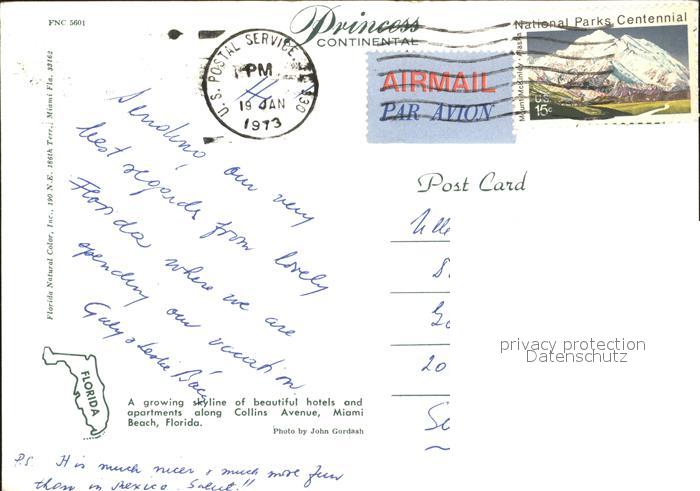 FNC 5601
Princess
CONTINENTAL
U. S. POSTAL SERVICE
PM
19 JAN
1973
AIRMAIL
PAR AVION
National Parks Centennial
Mount McKinley Alaska
U.S.
15c
Post Card
Sending our very
best regards from lovely
Florida where we are
spending our vacation
Gaby & Leslie
Florida Natural Color, Inc., 190 N.E. 186th Terr., Miami Fla. 33162
20
privacy protection
Datenschutz
FLORIDA
A growing skyline of beautiful hotels and
apartments along Collins Avenue, Miami
Beach, Florida.
Photo by John Gordash
P.S. It is much nicer & much more fun
than in Mexico. Salut!!